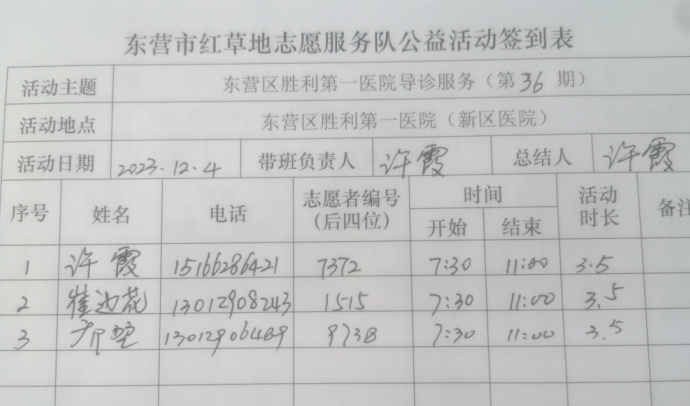 东营市红草地志愿服务队公益活动签到表
活动主题 东营区胜利第一医院导诊服务（第36期）
活动地点 东营区胜利第一医院（新区医院）
活动日期 2023.12.4 带班负责人 许霞 总结人 许霞
序号 姓名 电话 志愿者编号（后四位） 时间 开始 结束 活动时长 备注
1 许霞 15166286421 7372 7:30 11:00 3.5
2 崔边花 13012908243 1515 7:30 11:00 3.5
3 13012906489 9738 7:30 11:00 3.5